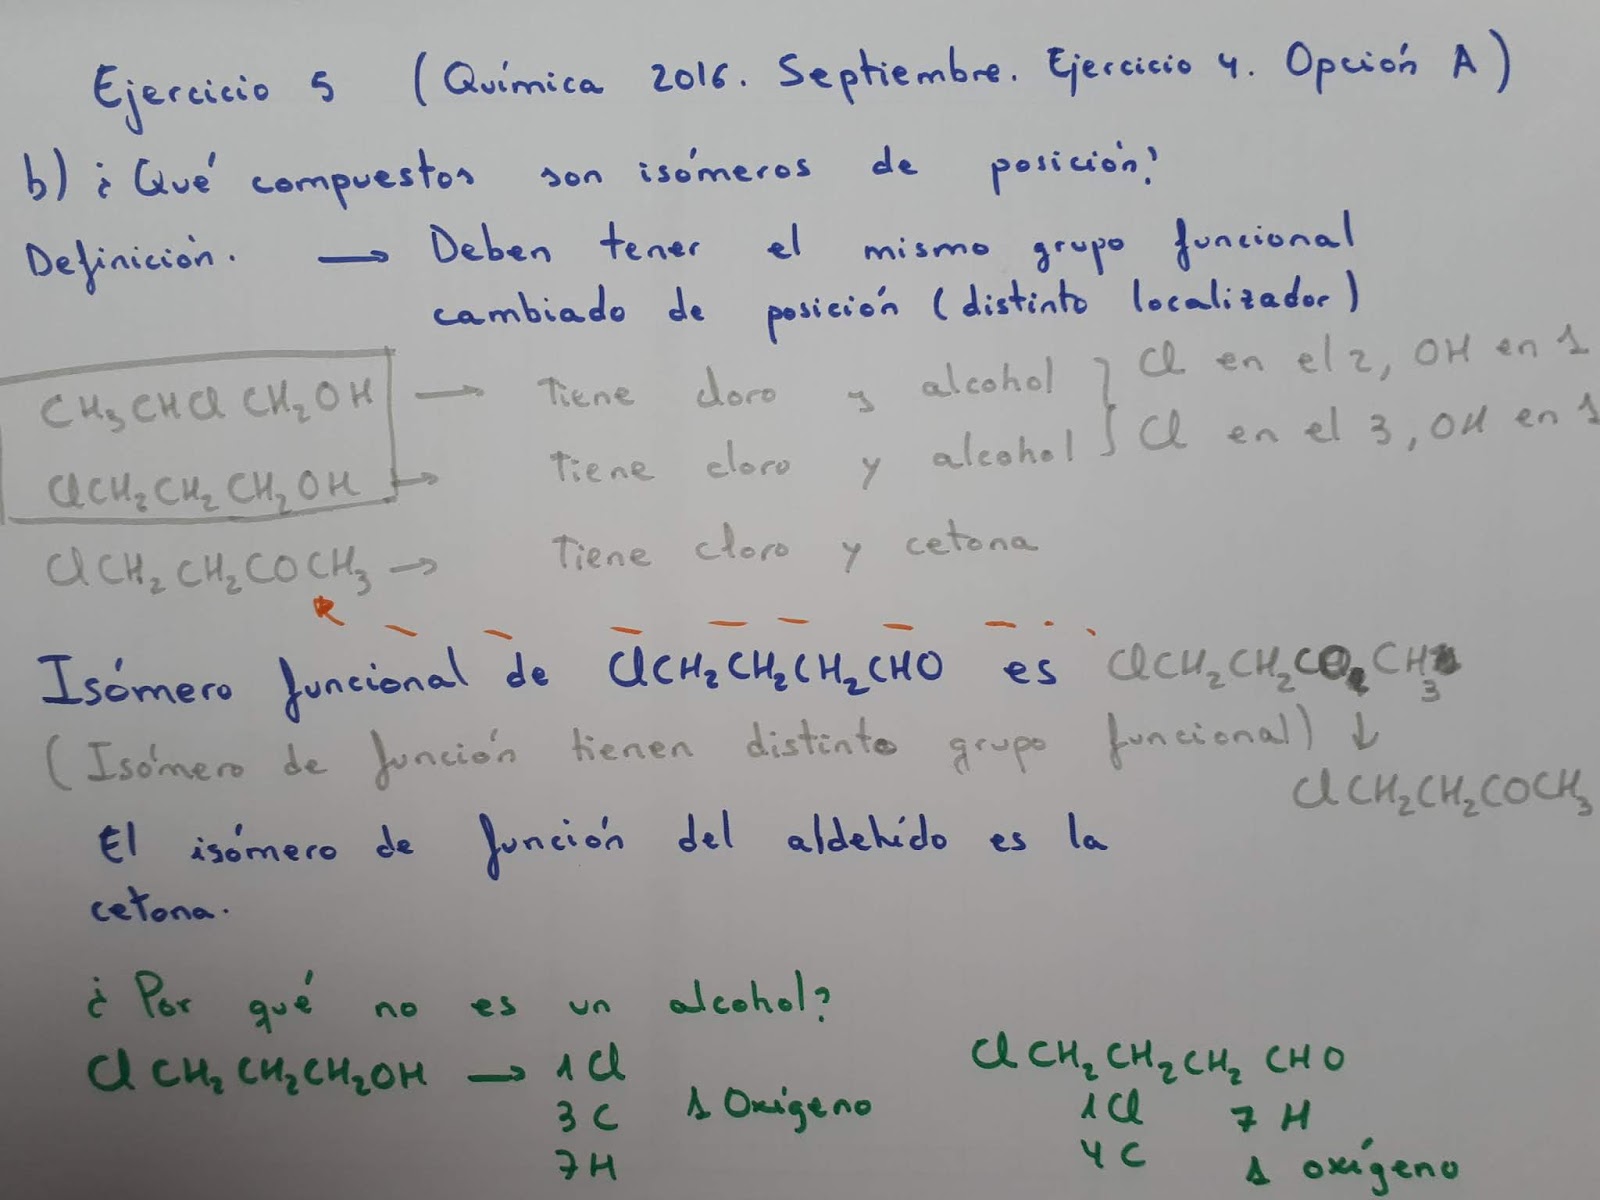 Ejercicio 5 (Química 2016. Septiembre. Ejercicio 4. Opción A)
b) ¿Qué compuestos son isómeros de posición?
Definición. → Deben tener el mismo grupo funcional
cambiado de posición (distinto localizador)
CH₃CHClCH₂OH → tiene cloro y alcohol } Cl en el 2, OH en 1
ClCH₂CH₂CH₂OH → tiene cloro y alcohol } Cl en el 3, OH en 1
ClCH₂CH₂COCH₃ → Tiene cloro y cetona
Isómero funcional de ClCH₂CH₂CH₂CHO es ClCH₂CH₂COCH₃
(Isómero de función tienen distinto grupo funcional) ↓
ClCH₂CH₂COCH₃
El isómero de función del aldehído es la
cetona.
¿Por qué no es un alcohol?
ClCH₂CH₂CH₂OH → 1Cl 1 Oxígeno
3C
7H
ClCH₂CH₂CH₂CHO
1Cl 7H
4C 1 oxígeno